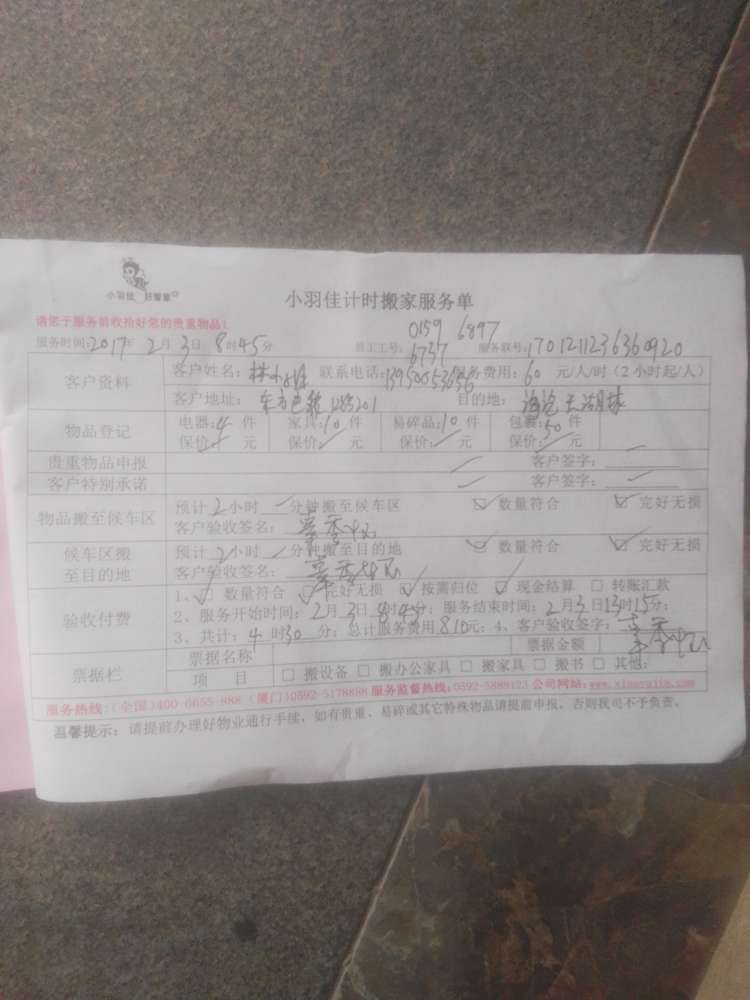 小羽佳 好管家
小羽佳计时搬家服务单
请您于服务前收拾好您的贵重物品!
0159 6897
服务时间:2017年 2月 3日 8时45分 员工工号: 6737 服务联号:1701211236360920
客户资料 客户姓名: 林小姐 联系电话:13950053656 服务费用: 60 元/人/时(2小时起/人)
客户地址: 目的地:
物品登记 电器:4 件 家具:10 件 易碎品:10 件 包裹:50 件
保价: 元 保价: 元 保价: 元 保价: 元
贵重物品申报 客户签字:
客户特别承诺 客户签字:
物品搬至候车区 预计2小时 分钟搬至候车区 ☑ 数量符合 ☑ 完好无损
客户验收签名:
候车区搬至目的地 预计2小时 分钟搬至目的地 ☑ 数量符合 ☑ 完好无损
客户验收签名:
验收付费 1、☑ 数量符合 ☑ 完好无损 ☑ 按需归位 ☑ 现金结算 □ 转账汇款
2、服务开始时间:2月3日8时45分;服务结束时间:2月3日13时15分;
3、共计:4 时30 分;总计服务费用810元;4、客户验收签字:
票据栏 票据名称 票据金额
项 目 □ 搬设备 □ 搬办公家具 □ 搬家具 □ 搬书 □ 其他:
服务热线:(全国)400-6655-888 (厦门)0592-5178888 服务监督热线:0592-5889123 公司网站:www.xiaoyujia.com
温馨提示:请提前办理好物业通行手续,如有贵重、易碎或其它特殊物品请提前申报,否则我司不予负责。